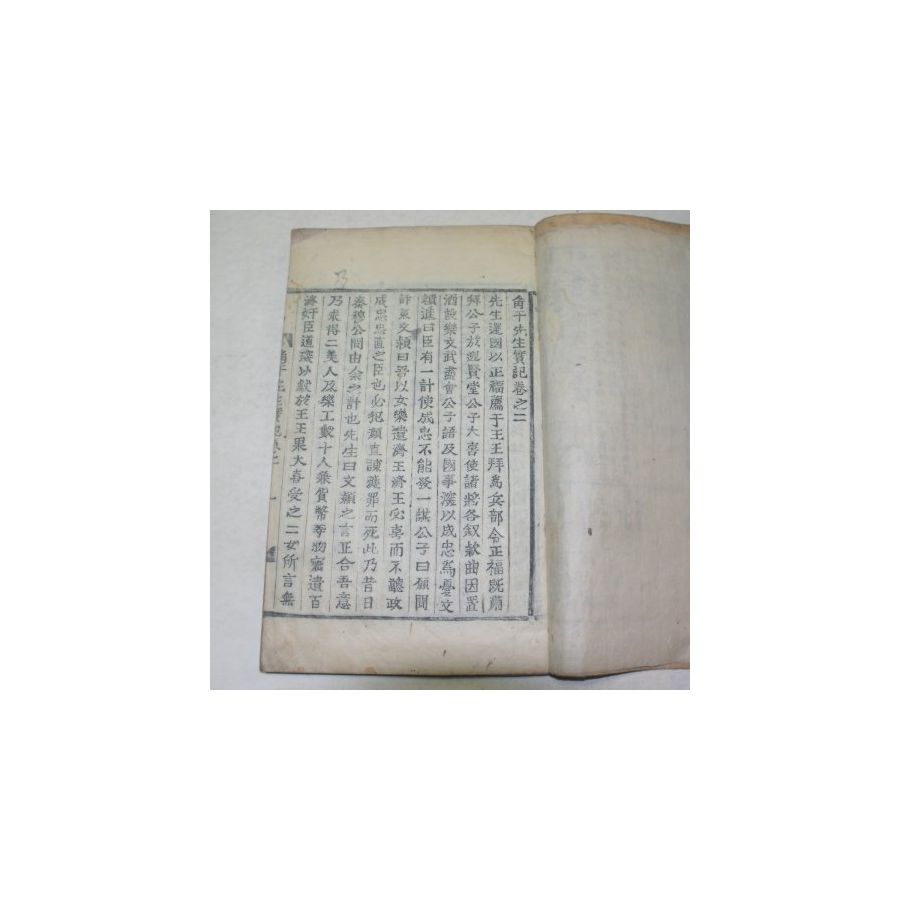 角干先生實記卷之二
先生還國以正福薦于王王拜爲兵部令正福旣肅
拜公子放迎賢堂公子大喜使諸將各叙款曲因置
酒設樂文武盡會公子語及國事深以成忠爲憂文
穎進曰臣有一計使成忠不能發一謀公子曰願聞
計策文穎曰吾以女樂遺濟王濟王必喜而不聽政
成忠忠直之臣也必犯顏直諫難罪而死此乃昔日
秦穆公間由余之計也先生曰文穎之言正合吾意
乃求得二美人及樂工數十人兼貨幣等物密遣百
濟奸臣道琰以獻於王王果大喜受之二女所言無
角干先生實記卷二
一
乃